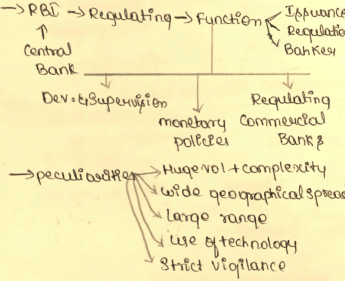 → RBI → Regulating → Function Issuance
Regulatio
Banker
↑
Central
Bank
Dev. & Supervision
monetary
policies
Regulating
Commercial
Banks
→ peculiarities
Huge vol + complexity
wide geographical sprea
Large range
use of technology
Strict vigilance